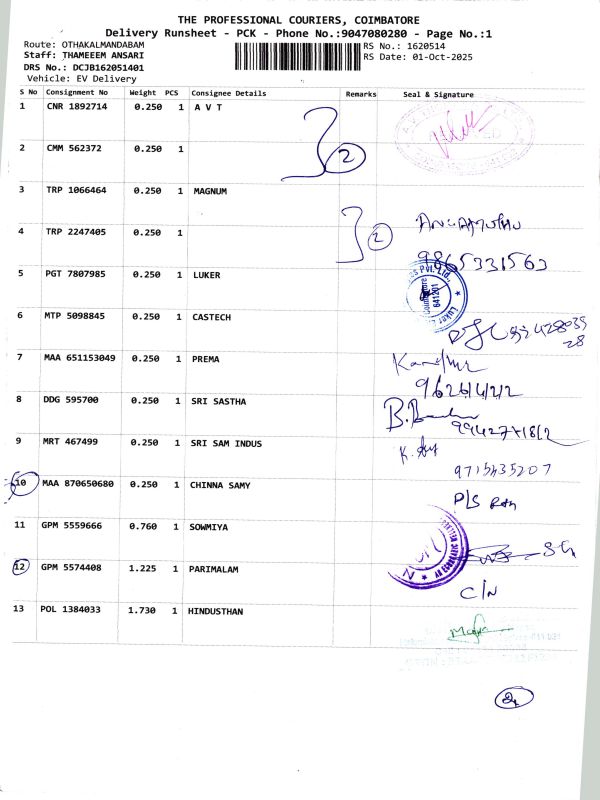 THE PROFESSIONAL COURIERS, COIMBATORE
Delivery Runsheet - PCK - Phone No.:9047080280 - Page No.:1
Route: OTHAKALMANDABAM
Staff: THAMEEEM ANSARI
DRS No.: DCJB162051401
Vehicle: EV Delivery
RS No.: 1620514
RS Date: 01-Oct-2025
S No Consignment No Weight PCS Consignee Details Remarks Seal & Signature
1 CNR 1892714 0.250 1 A V T
2 CMM 562372 0.250 1
2
3 TRP 1066464 0.250 1 MAGNUM
4 TRP 2247405 0.250 1
2
9865331563
5 PGT 7807985 0.250 1 LUKER
Coimbatore
641201
6 MTP 5098845 0.250 1 CASTECH
7 MAA 651153049 0.250 1 PREMA
8 DDG 595700 0.250 1 SRI SASTHA
9 MRT 467499 0.250 1 SRI SAM INDUS
9715435207
10 MAA 870650680 0.250 1 CHINNA SAMY
11 GPM 5559666 0.760 1 SOWMIYA
12 GPM 5574408 1.225 1 PARIMALAM
C/N
13 POL 1384033 1.730 1 HINDUSTHAN